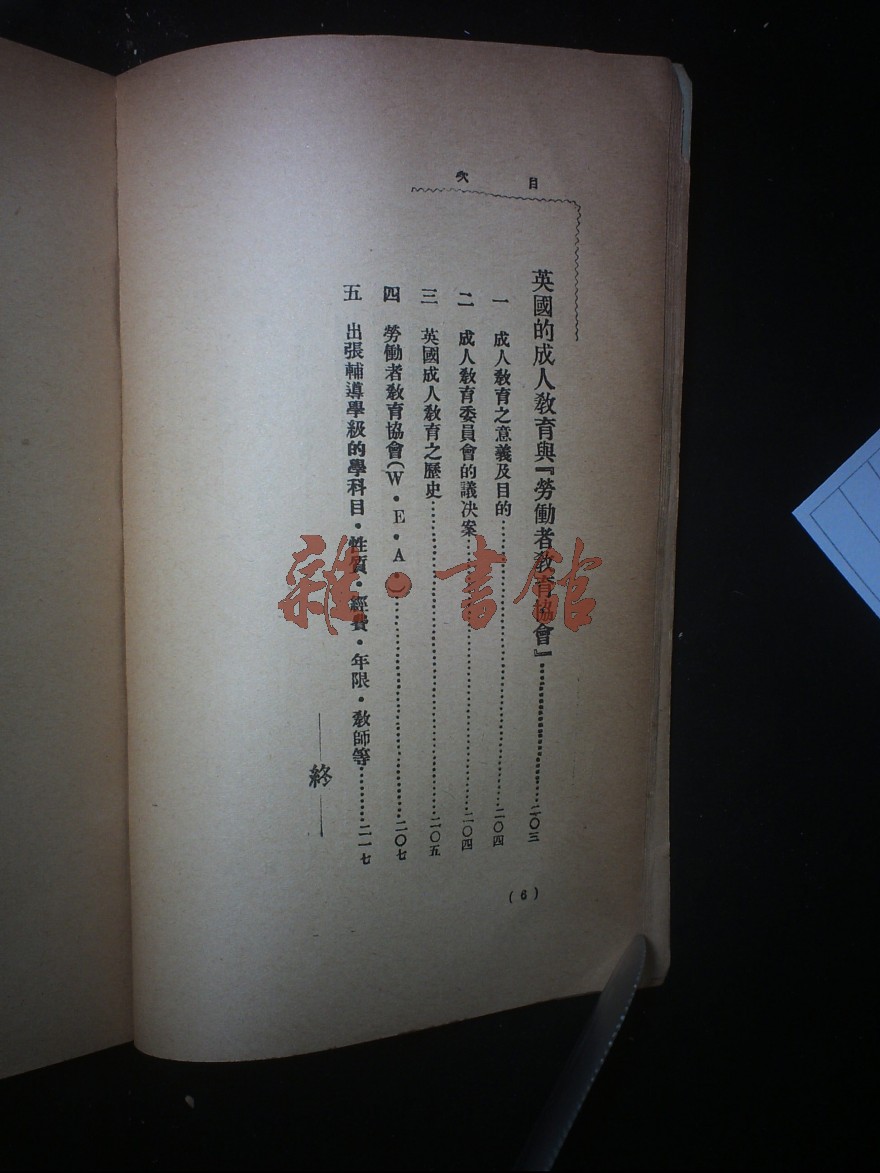 目次
英國的成人敎育與『勞働者敎育協會』……二〇三
一 成人敎育之意義及目的……二〇四
二 成人敎育委員會的議決案……二〇四
三 英國成人敎育之歷史……二〇五
四 勞働者敎育協會(W・E・A・)……二〇七
五 出張輔導學級的學科目・性質・經費・年限・敎師等……二一七
——終——
(6)
雜・書館